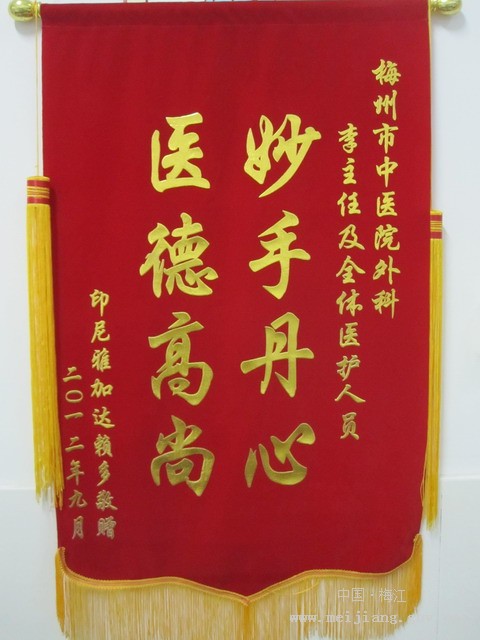 梅州市中医院外科
李主任及全体医护人员
妙手丹心
医德高尚
印尼雅加达赖多敬赠
二〇一二年九月
中国·梅江
www.meijiang.c